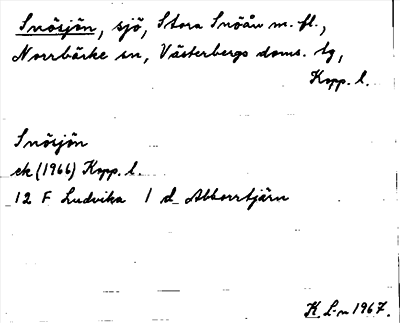 Snösjön, sjö, Stora Snöån m. fl.,
Norrbärke sn, Västerbergs doms. tg,
Kopp. l.
Snösjön
ek (1966) Kopp. l.
12 F Ludvika 1 d Abborrtjärn
K L-n 1967.